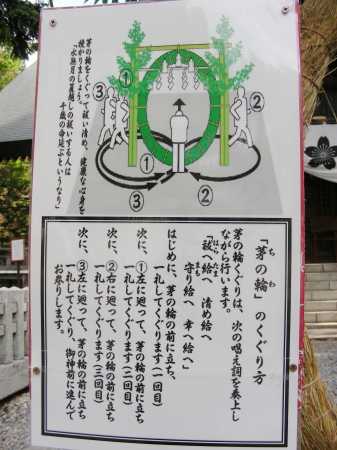 茅の輪をくぐって祓い清め、健康な心身を
授かりましょう。
「水無月の夏越しの祓いする人は
千歳の命延ぶというなり」
①
②
③
①
③
②
「茅の輪」のくぐり方
ち
わ
茅の輪くぐりは、次の唱え詞を奏上し
ながら行います。
「祓へ給へ 清め給へ
はら
たま
守り給へ 幸へ給へ」
まも
はじめに、茅の輪の前に立ち、
一礼してくぐり、
次に、①左に廻って、茅の輪の前に立ち
一礼してくぐります(一回目)
次に、②右に廻って、茅の輪の前に立ち
一礼してくぐります(二回目)
次に、③左に廻って、茅の輪の前に立ち
一礼してくぐり、御神前に進んで
お参りします。